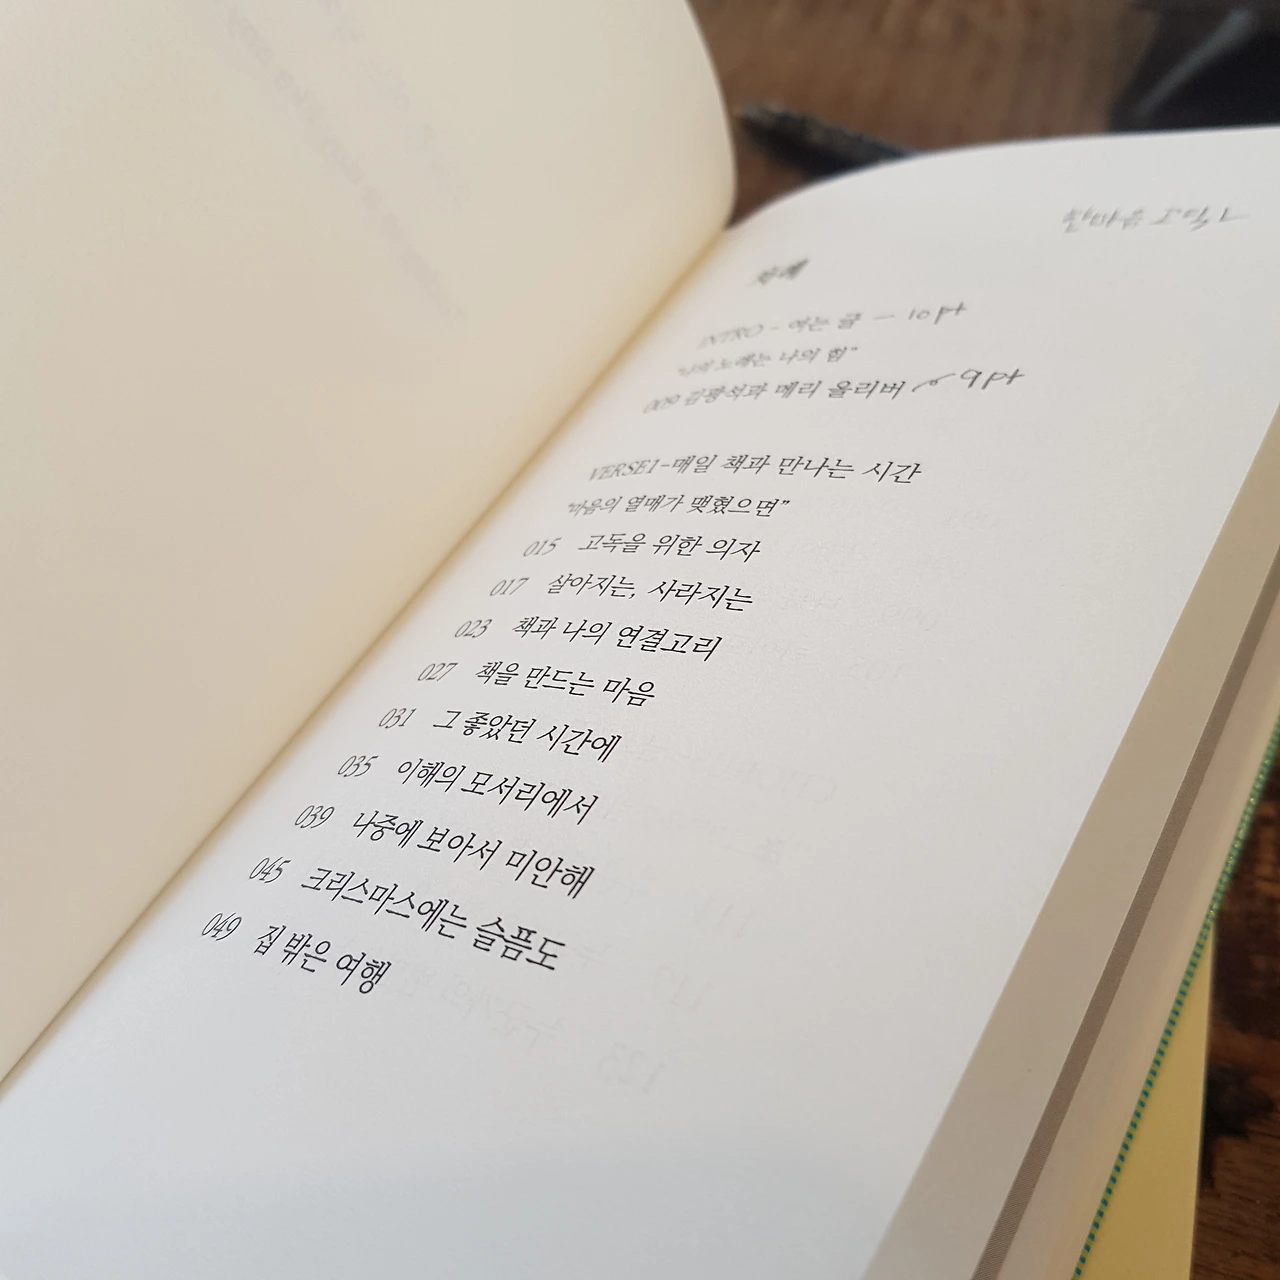 차례
INTRO - 여는 글 - 10pt
"나의 노래는 나의 힘"
009 김광석과 메리 올리버 9pt
VERSE1-매일 책과 만나는 시간
"마음의 열매가 맺혔으면"
015 고독을 위한 의자
017 살아지는, 사라지는
023 책과 나의 연결고리
027 책을 만드는 마음
031 그 좋았던 시간에
035 이해의 모서리에서
039 나중에 보아서 미안해
045 크리스마스에는 슬픔도
049 집 밖은 여행